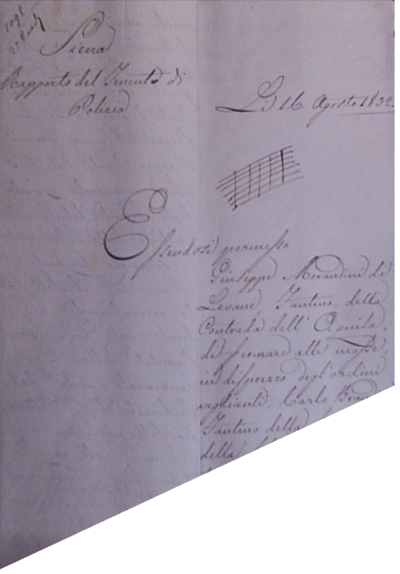 Siena
Rapporto del Tenente di
Polizia
Li 16. Agosto 1832.
Essendosi permesso
Giuseppe Morandini di
Fantino della
Contrada dell' Aquila,
di fermare alle mosse,
in disprezzo degl'ordini
veglianti, Carlo
Fantino della
della